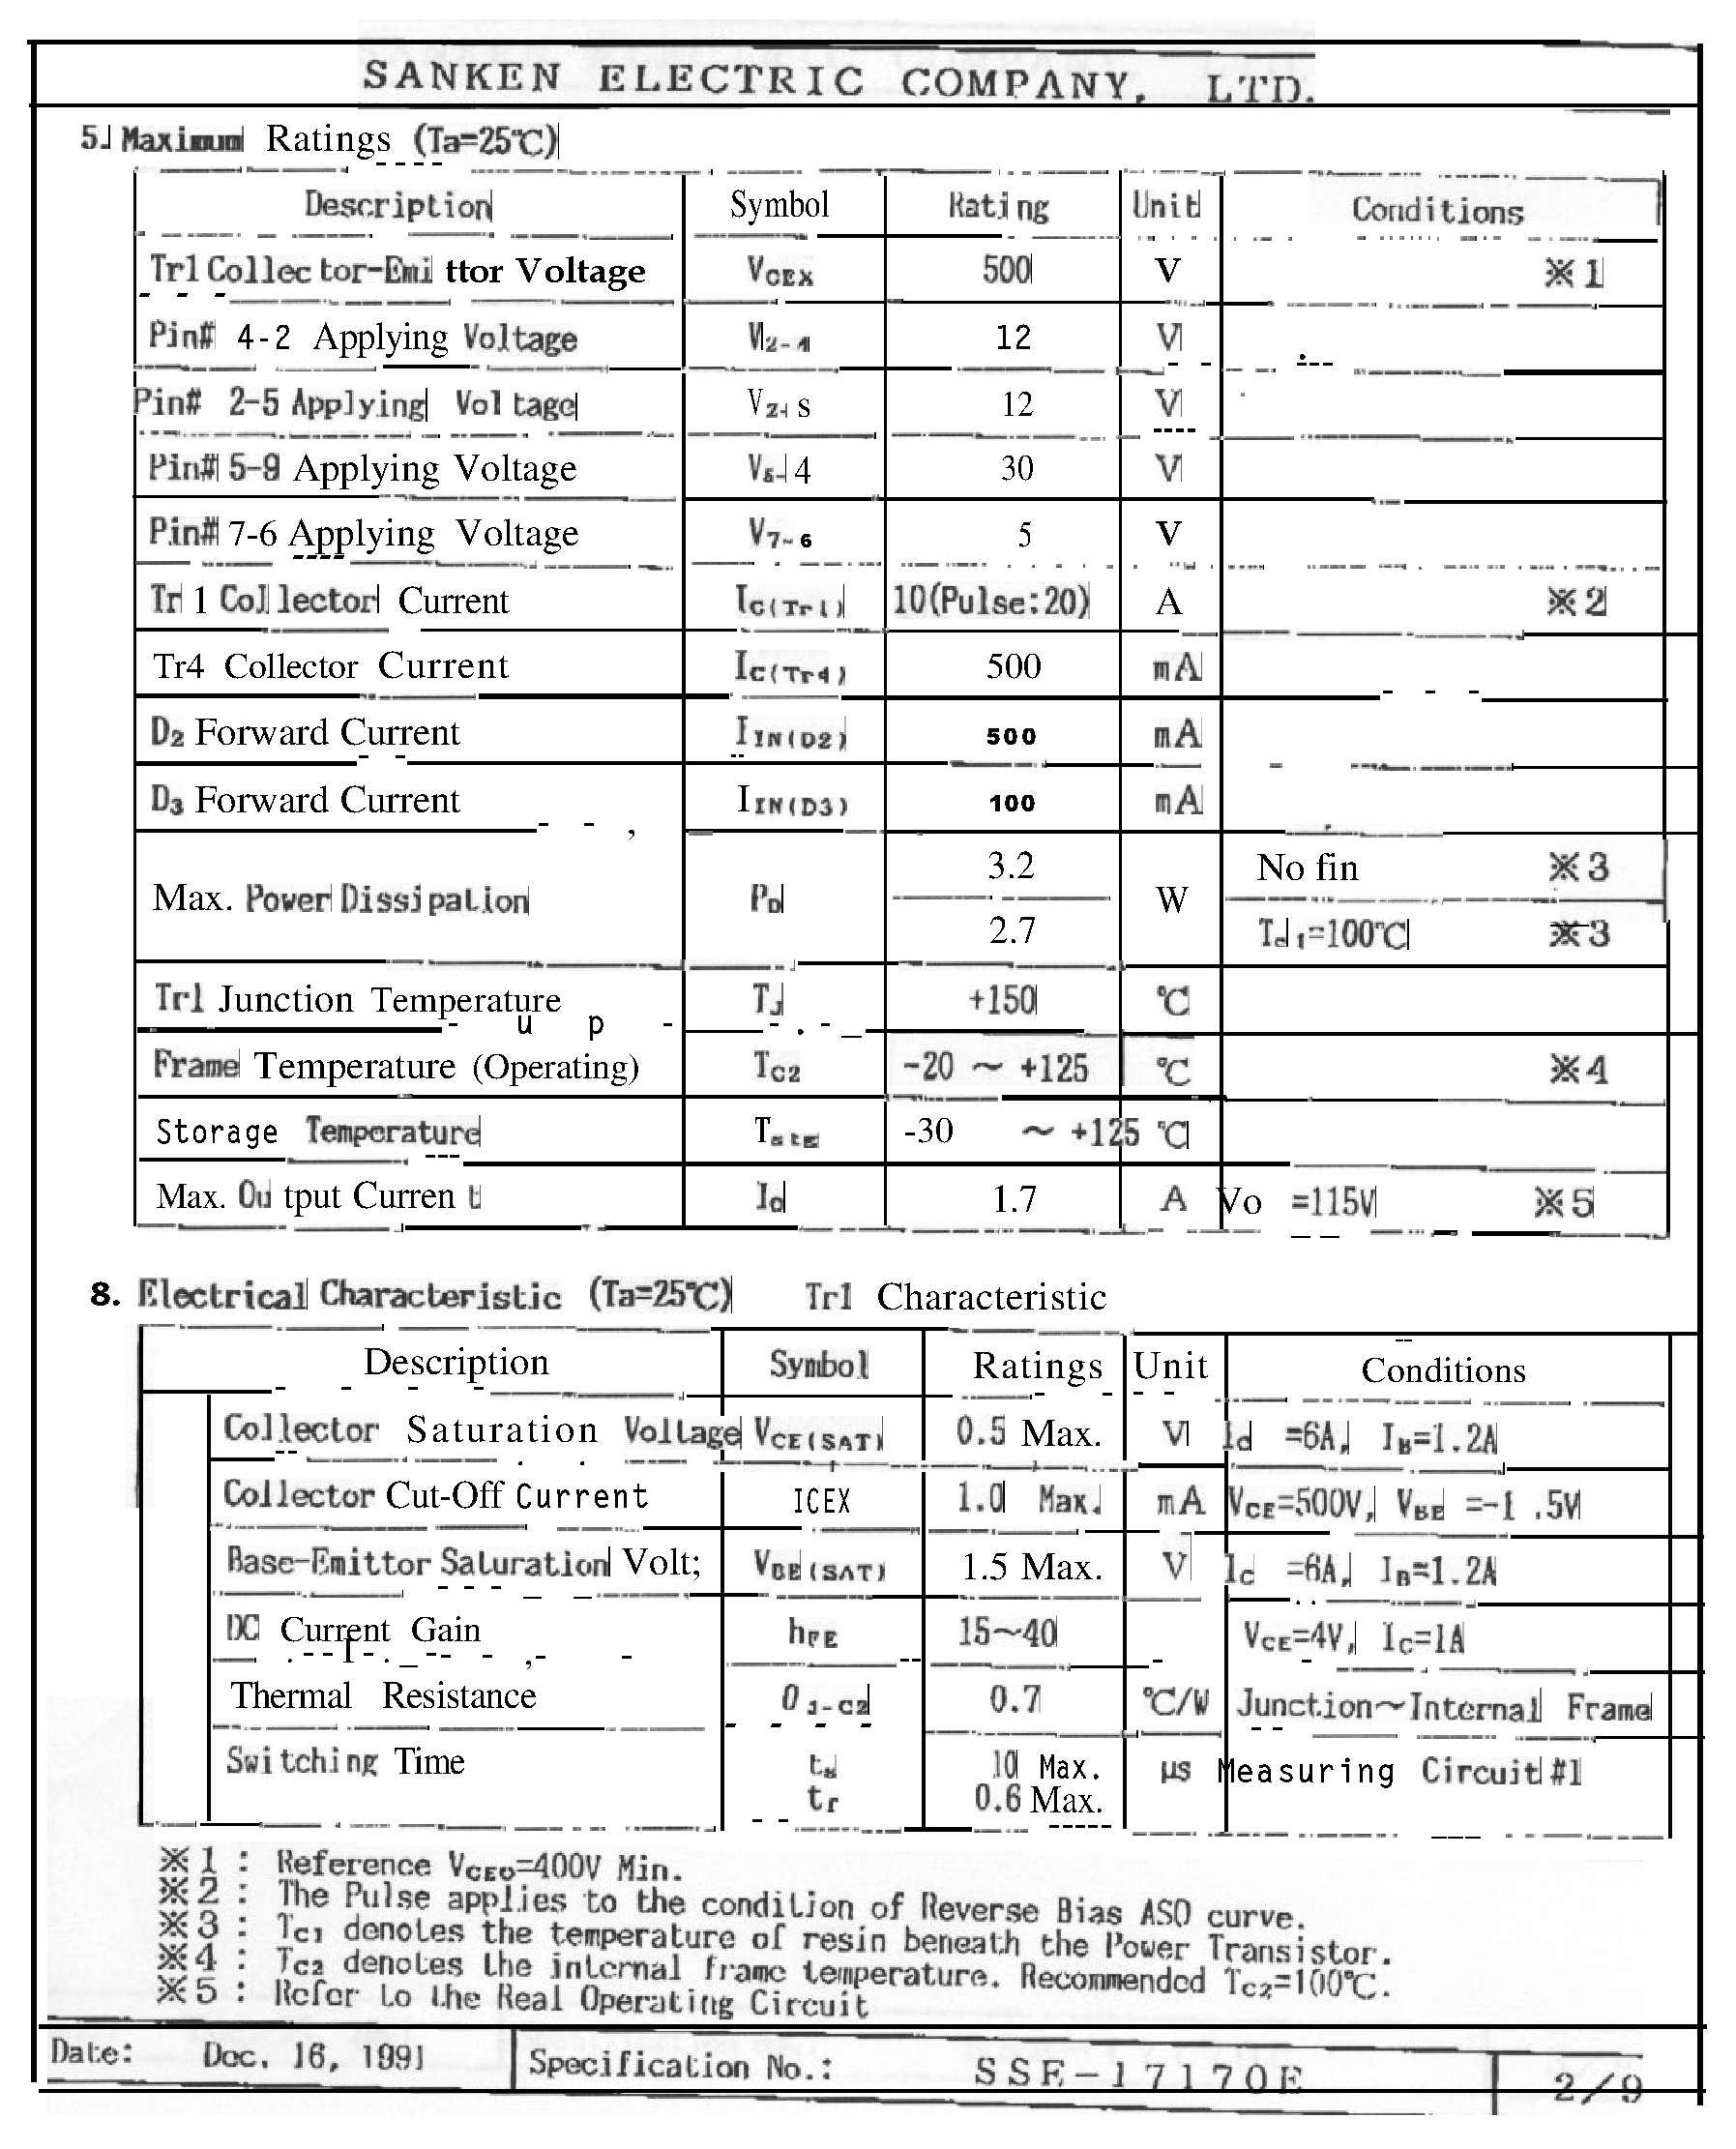 SANKEN ELECTRIC COMPANY, LTD.
5. Maximum Ratings (Ta=25℃)
Description Symbol Rating Unit Conditions
Tr1 Collector-Emittor Voltage VCEX 500 V ※1
Pin# 4-2 Applying Voltage V2-4 12 V
Pin# 2-5 Applying Voltage V2-5 12 V
Pin# 5-9 Applying Voltage V5-4 30 V
Pin# 7-6 Applying Voltage V7-6 5 V
Tr1 Collector Current IC(Tr1) 10(Pulse:20) A ※2
Tr4 Collector Current IC(Tr4) 500 mA
D2 Forward Current IIN(D2) 500 mA
D3 Forward Current IIN(D3) 100 mA
Max. Power Dissipation PD 3.2 W No fin ※3
2.7 Tc1=100℃ ※3
Tr1 Junction Temperature TJ +150 ℃
Frame Temperature (Operating) TC2 -20 ~ +125 ℃ ※4
Storage Temperature Tstg -30 ~ +125 ℃
Max. Output Current IO 1.7 A Vo =115V ※5
8. Electrical Characteristic (Ta=25℃) Tr1 Characteristic
Description Symbol Ratings Unit Conditions
Collector Saturation Voltage VCE(SAT) 0.5 Max. V IC =6A, IB=1.2A
Collector Cut-Off Current ICEX 1.0 Max. mA VCE=500V, VBE =-1.5V
Base-Emittor Saturation Volt; VBE(SAT) 1.5 Max. V IC =6A, IB=1.2A
DC Current Gain hFE 15~40 VCE=4V, IC=1A
Thermal Resistance θJ-C2 0.7 ℃/W Junction~Internal Frame
Switching Time ts 10 Max. μs Measuring Circuit #1
tf 0.6 Max.
※1 : Reference VCEO=400V Min.
※2 : The Pulse applies to the condition of Reverse Bias ASO curve.
※3 : Tc1 denotes the temperature of resin beneath the Power Transistor.
※4 : Tc2 denotes the internal frame temperature. Recommended Tc2=100℃.
※5 : Refer to the Real Operating Circuit
Date: Dec. 16, 1991 Specification No.: SSE-17170E 2/9